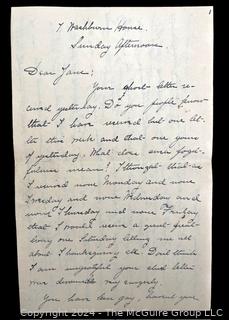 1
7 Washburn House.
Sunday Afternoon
Dear Jane:
Your short letter re-
ceived yesterday. Do you people know
that I have received but one let-
ter this week and that one yours
of yesterday. What does such forget-
fulness mean? I thought that as
I received none Monday and none
Tuesday and none Wednesday and
none Thursday and none Friday
that I would receive a great
one Saturday telling me all
about Thanksgiving etc. Don't think
I am ungrateful your short letter
was devoured my
You have been gay, haven't you
Copyright 2024 - The McGuire Group LLC